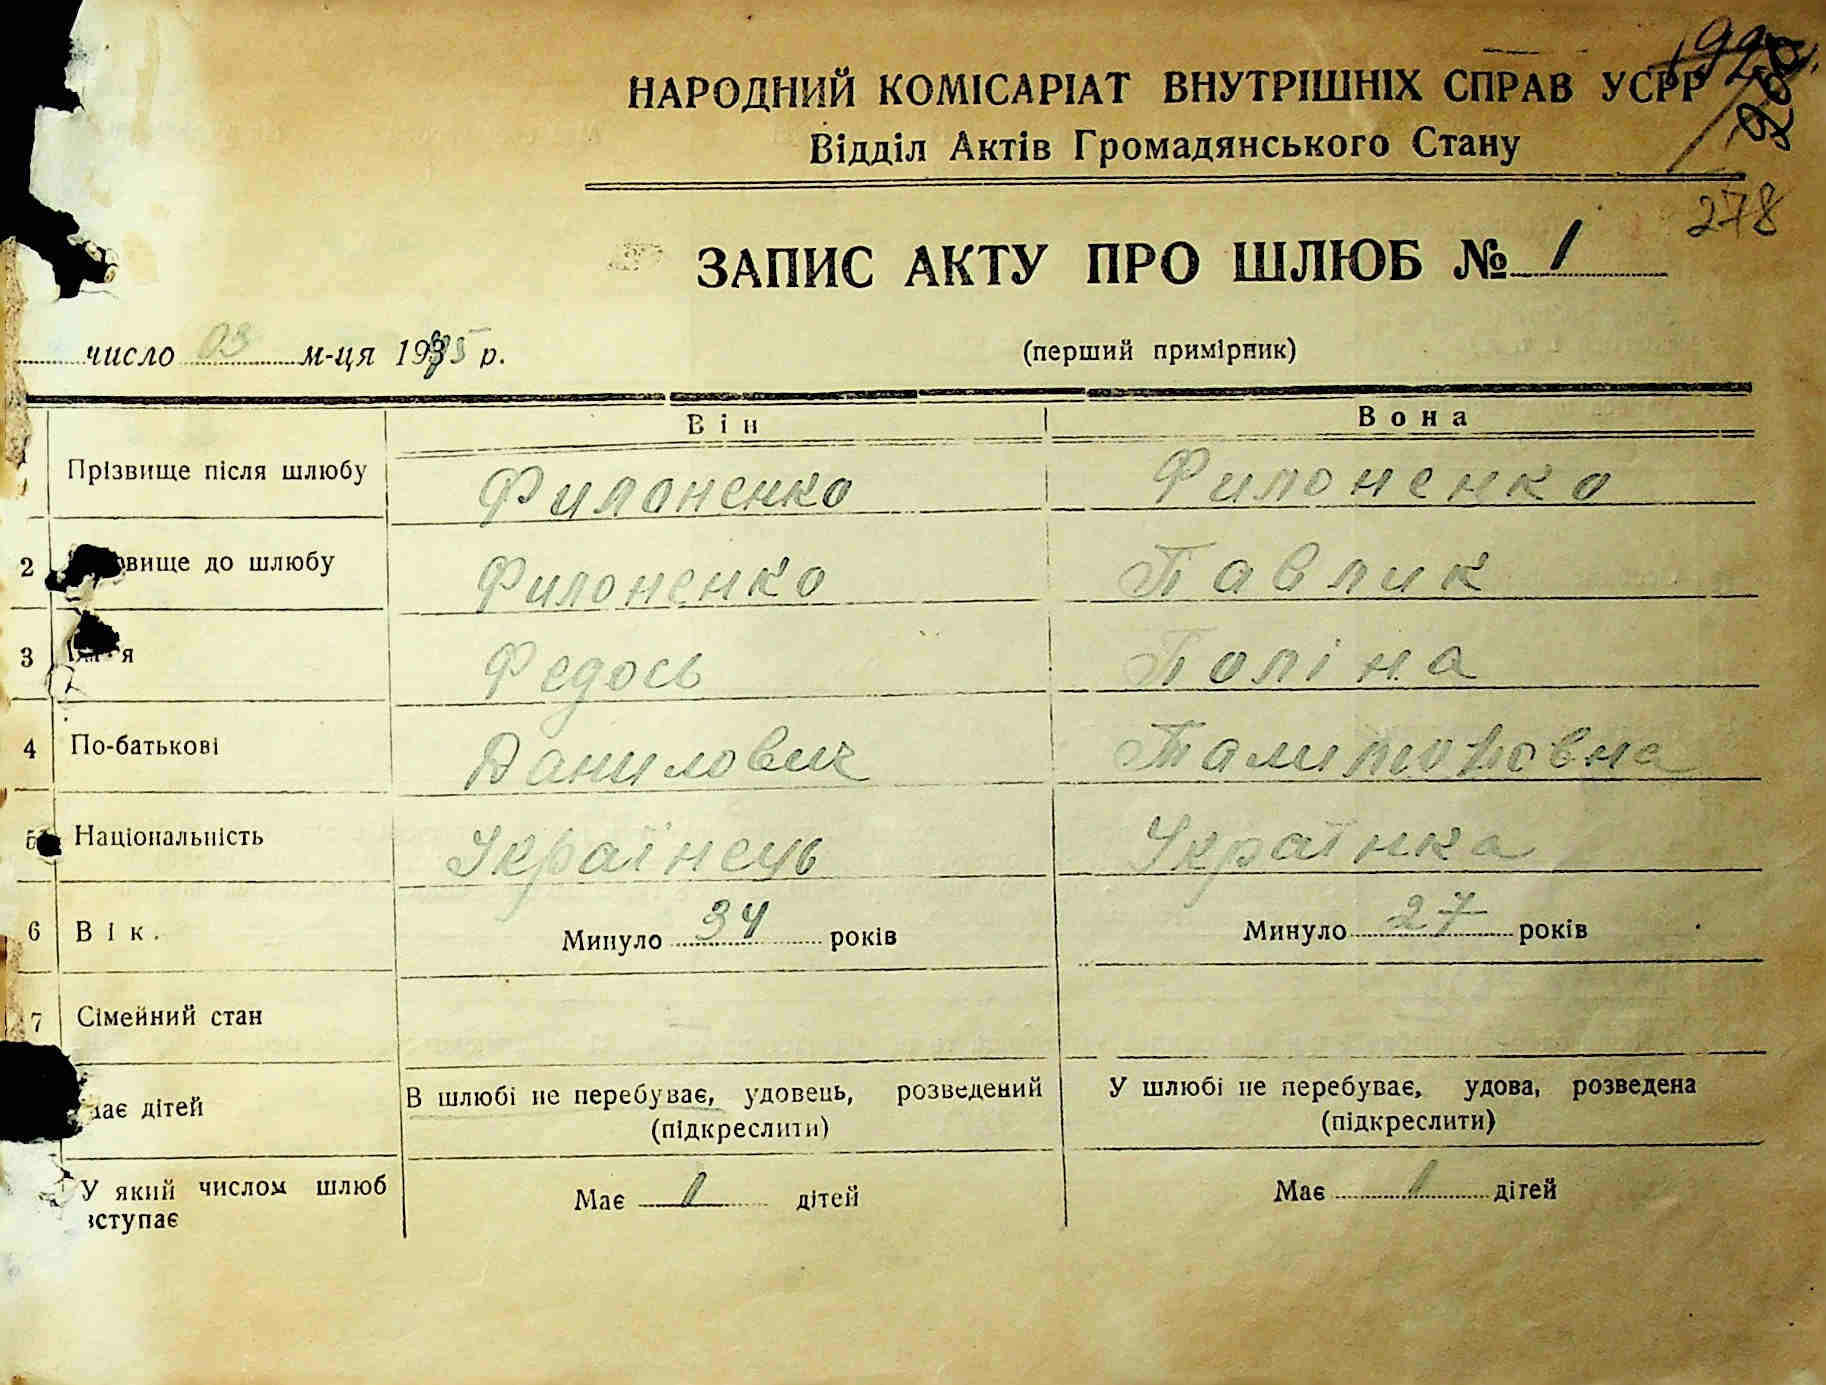 278
НАРОДНИЙ КОМІСАРІАТ ВНУТРІШНІХ СПРАВ УСРР
Відділ Актів Громадянського Стану
ЗАПИС АКТУ ПРО ШЛЮБ № 1
число 03 м-ця 1935 р.
(перший примірник)
Він Вона
Прізвище після шлюбу Филоненко Филоненко
2 вище до шлюбу Филоненко Павлик
3 Федось Поліна
4 По-батькові Данилович
5 Національність Українець Українка
6 Вік. Минуло 34 років Минуло 27 років
7 Сімейний стан
має дітей В шлюбі не перебуває, удовець, розведений У шлюбі не перебуває, удова, розведена
(підкреслити) (підкреслити)
У який числом шлюб Має 1 дітей Має 1 дітей
вступає